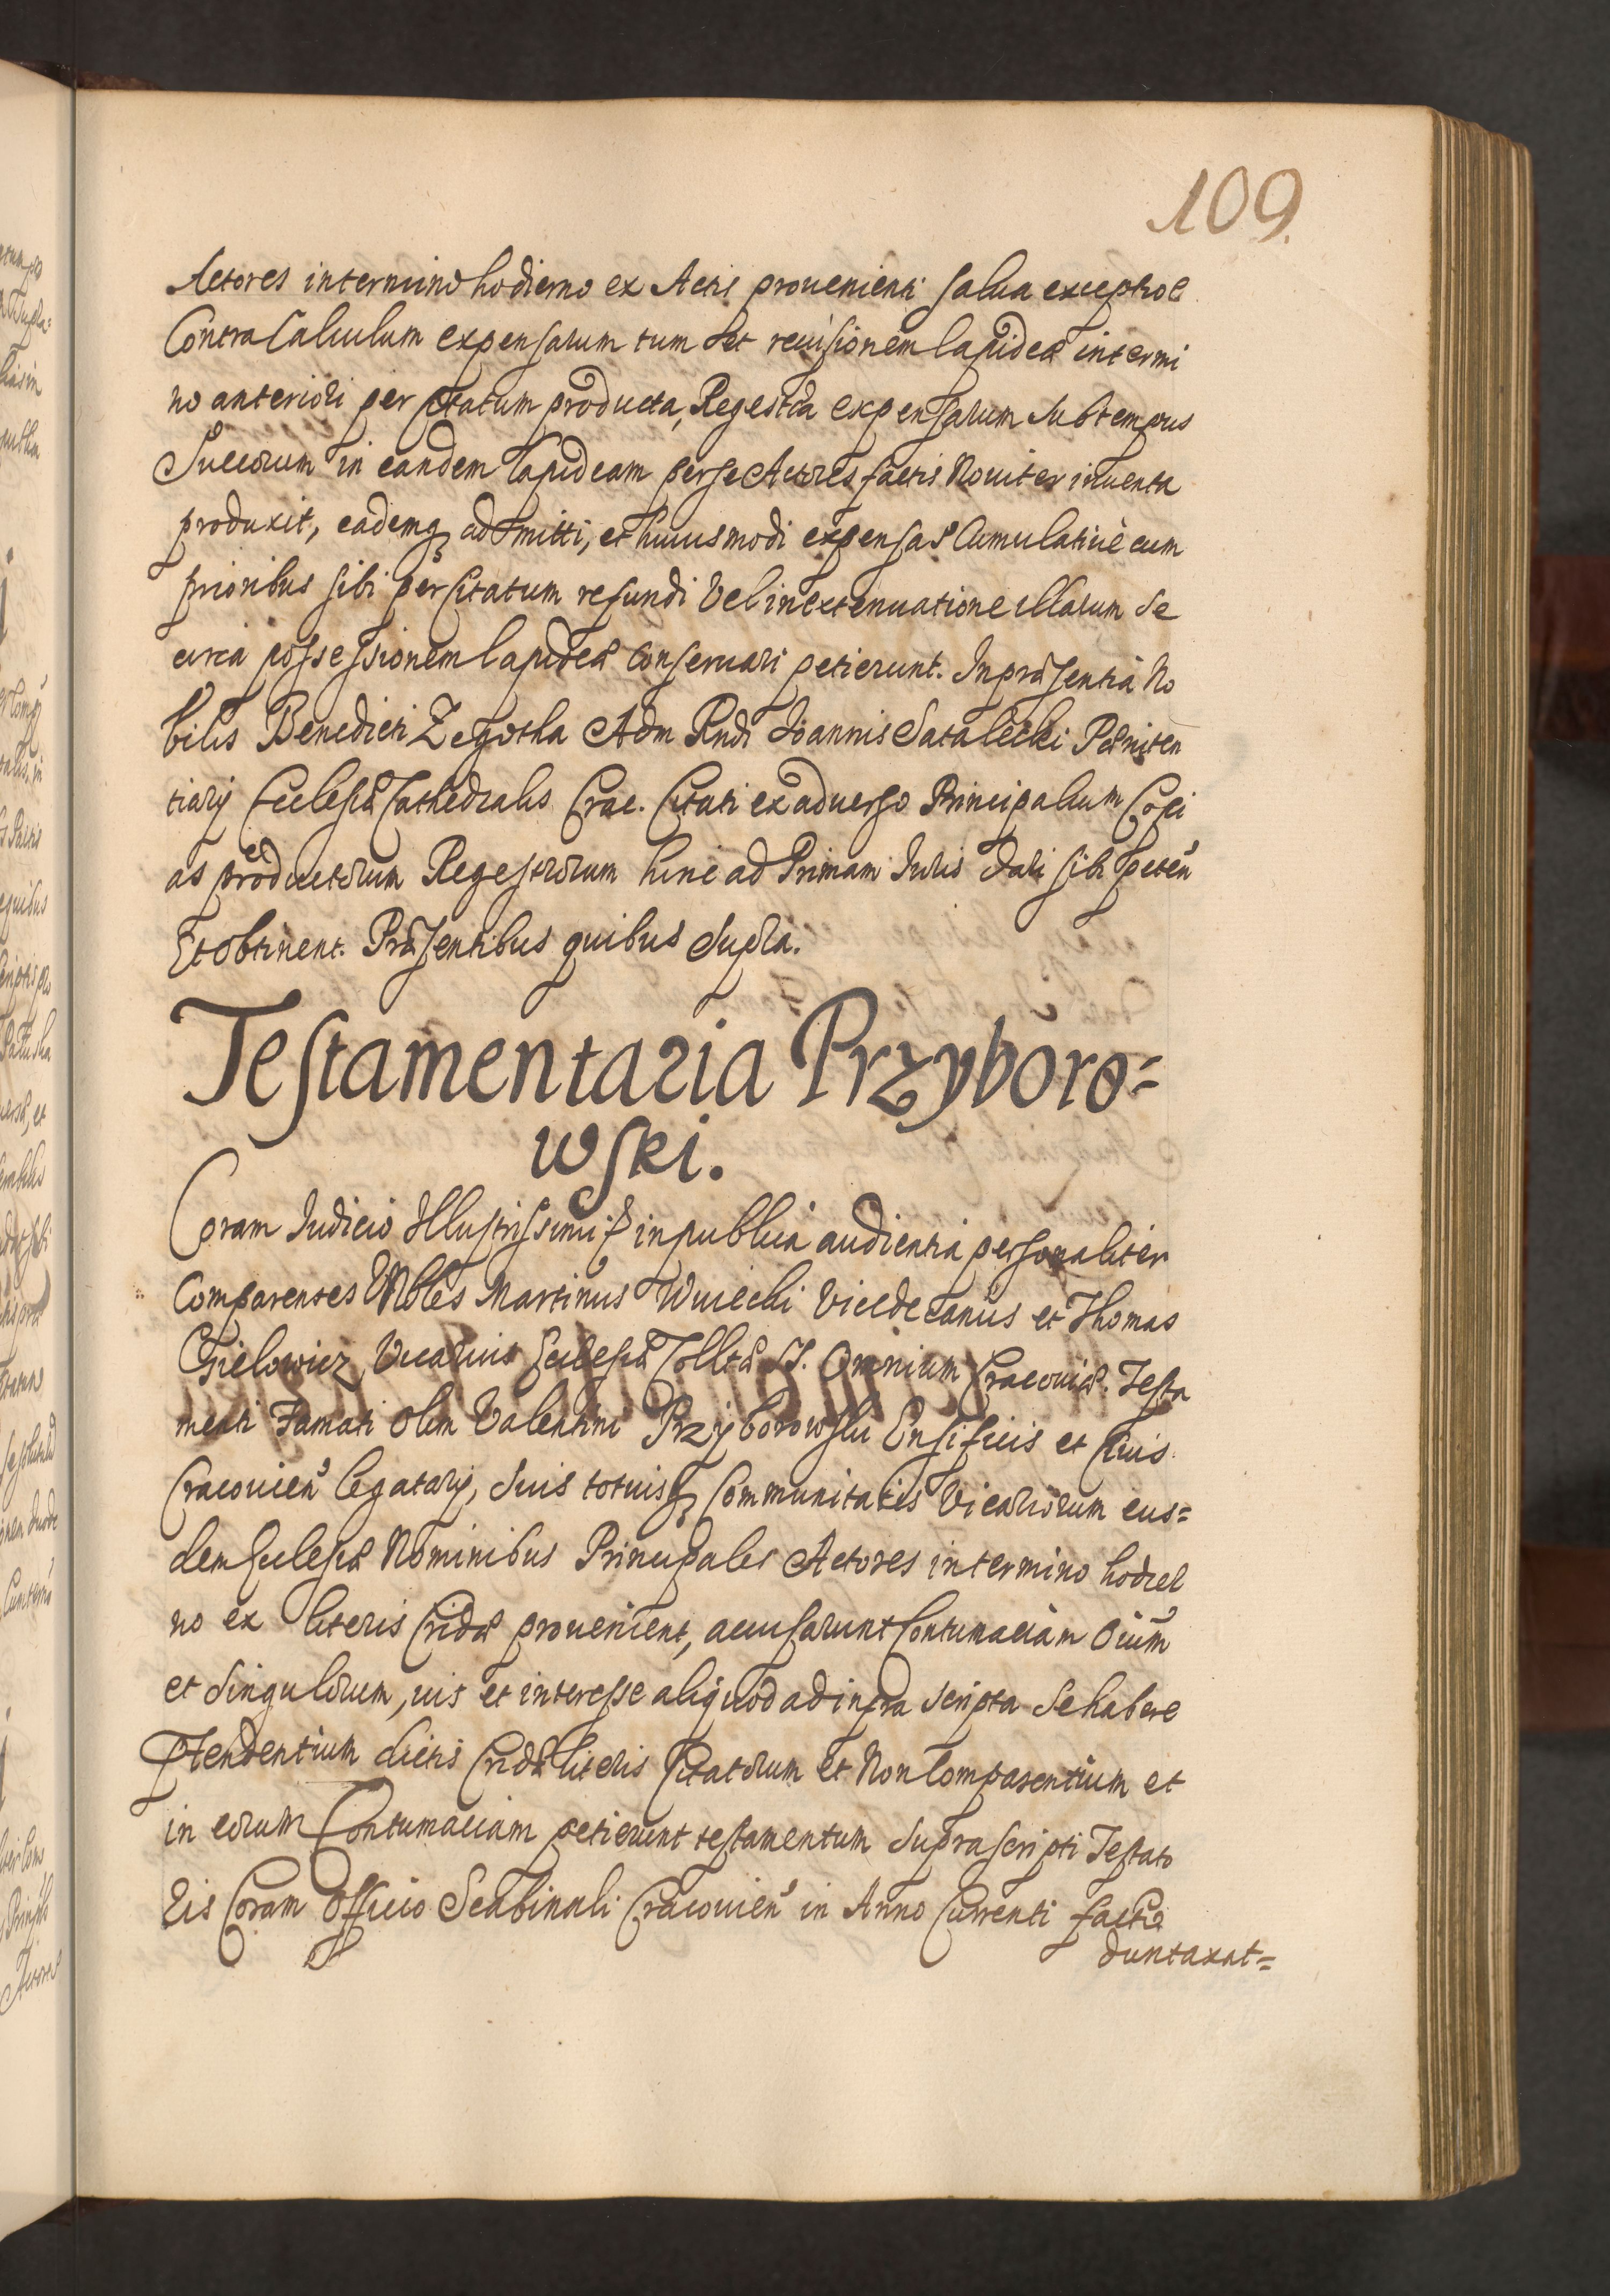 109.
Actores in termino hodierno ex Actis provenienti salva exceptioe
Contra Calculum expensarum tum et revisionem lapideæ in termi
no anteriori per Citatum producta, Regestra expensarum sub tempus
Suecorum in eandem lapideam per se Actores factis Noviter inventa
produxit, eademq admitti, et huiusmodi expensas Cumulative cum
prioribus sibi per Citatum refundi Vel in extenuatione illarum se
circa possessionem lapideæ conservari petierunt. In præsentia No
bilis Benedicti Zegotha Adm Rndi Joannis Satalecki Pœniten
tiarij Ecclesiæ Cathedralis Crac. Citati ex adverso Principalium Copi
as productorum Regestrorum hinc ad Primam Juris dari sibi peten
Et obtinent. Præsentibus quibus Supra.
Testamentaria Przyboro=
wski.
Coram Judicio Illustrissimi in publica audientia personaliter
Comparentes Nbles Martinus Wuiecki Vicedecanus et Thomas
Gielowicz Vicarius Ecclesiæ Colltæ SS. Omnium Cracoviæ. Testa
menti Famati olim Valentini Przyborowski Ensificis et Civis
Cracovien legatarij, suis totiusq Communitatis Vicariorum eius=
dem Ecclesiæ Nominibus Principales Actores in termino hodier
no ex literis Cridæ provenient, accusarunt Contumaciam Oium
et singulorum, ius et interesse aliquod ad infra scripta se habere
Ptendentium dictis Cridæ literis Citatorum et Non Comparentium et
in eorum Contumaciam petierunt testamentum supra scripti Testato
ris Coram Officio Scabinali Cracovien in Anno Currenti facti
duntaxat=